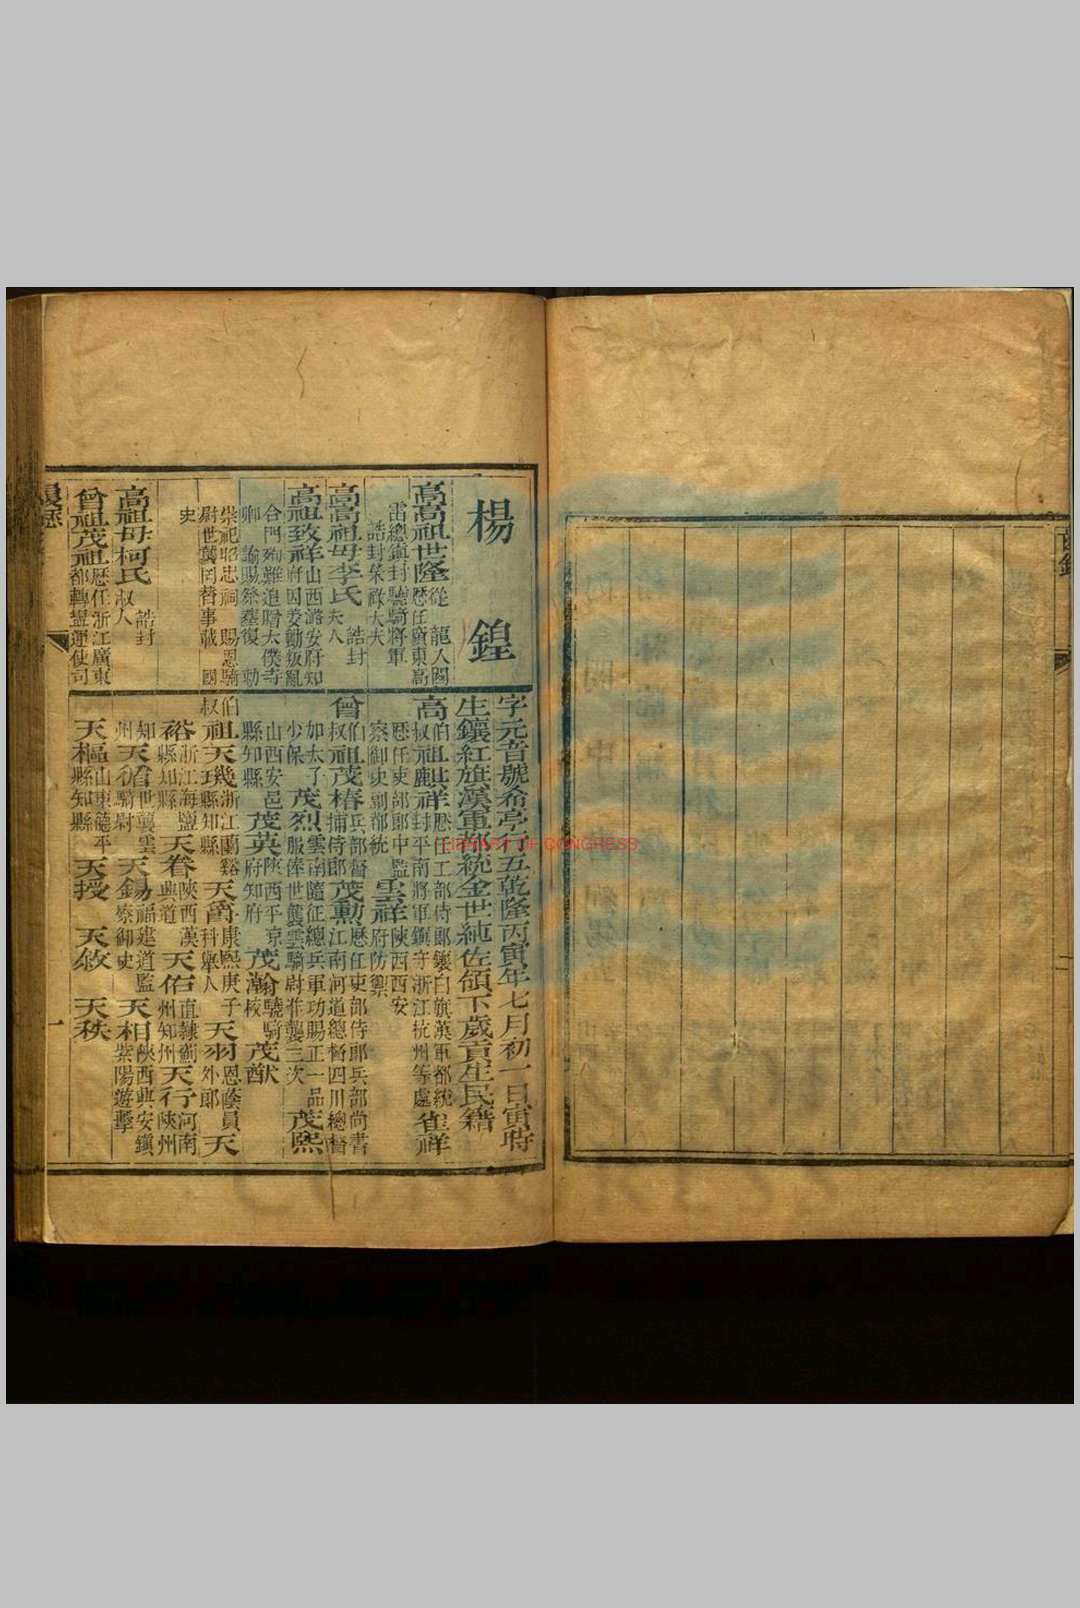 楊 鍠
高高祖世隆從 龍入關歷任廣東高
雷總鎮封驍騎將軍
誥封榮祿大夫
高高祖母李氏 誥封夫人
高祖致祥山西潞安府知府因姜勷叛亂
合門殉難追贈太僕寺卿 諭賜祭葬復 勅
崇祀昭忠祠 賜恩騎尉世襲罔替事載 國
史
高祖母柯氏 誥封淑人
曾祖茂祖歷任浙江廣東都轉鹽運使司
履歷
字元音號希亭行五乾隆丙寅年七月初一日寅時
生鑲紅旗漢軍都統金世純佐領下歲貢生民籍
高伯叔祖世祥歷任工部侍郎鑲白旗漢軍都統 鹿祥封平南將軍鎮守浙江杭州等處 崔祥
歷任吏部郎中監察御史副都統 雲祥陝西西安府防禦
曾伯叔祖茂椿兵部督捕侍郎 茂勲歷任吏部侍郎兵部尚書江南河道總督四川總督
如太子少保 茂烈雲南隨征總兵軍功賜正一品服俸世襲雲騎尉准襲三次 茂熙
山西安邑縣知縣 茂英陝西平涼府知府 茂瀚驍騎校 茂猷
伯叔祖天璣浙江蘭谿縣知縣 天爵康熙庚子科舉人 天羽恩蔭員外郎 天
裕浙江海鹽縣知縣 天眷陝西漢興道 天佑直隸薊州知州 天行河南陝州
知州 天𧙗世襲雲騎尉 天錫福建道監察御史 天相陝西興安鎮紫陽遊擊
天樞山東德平縣知縣 天授 天敘 天秩
一
LIBRARY OF CONGRESS